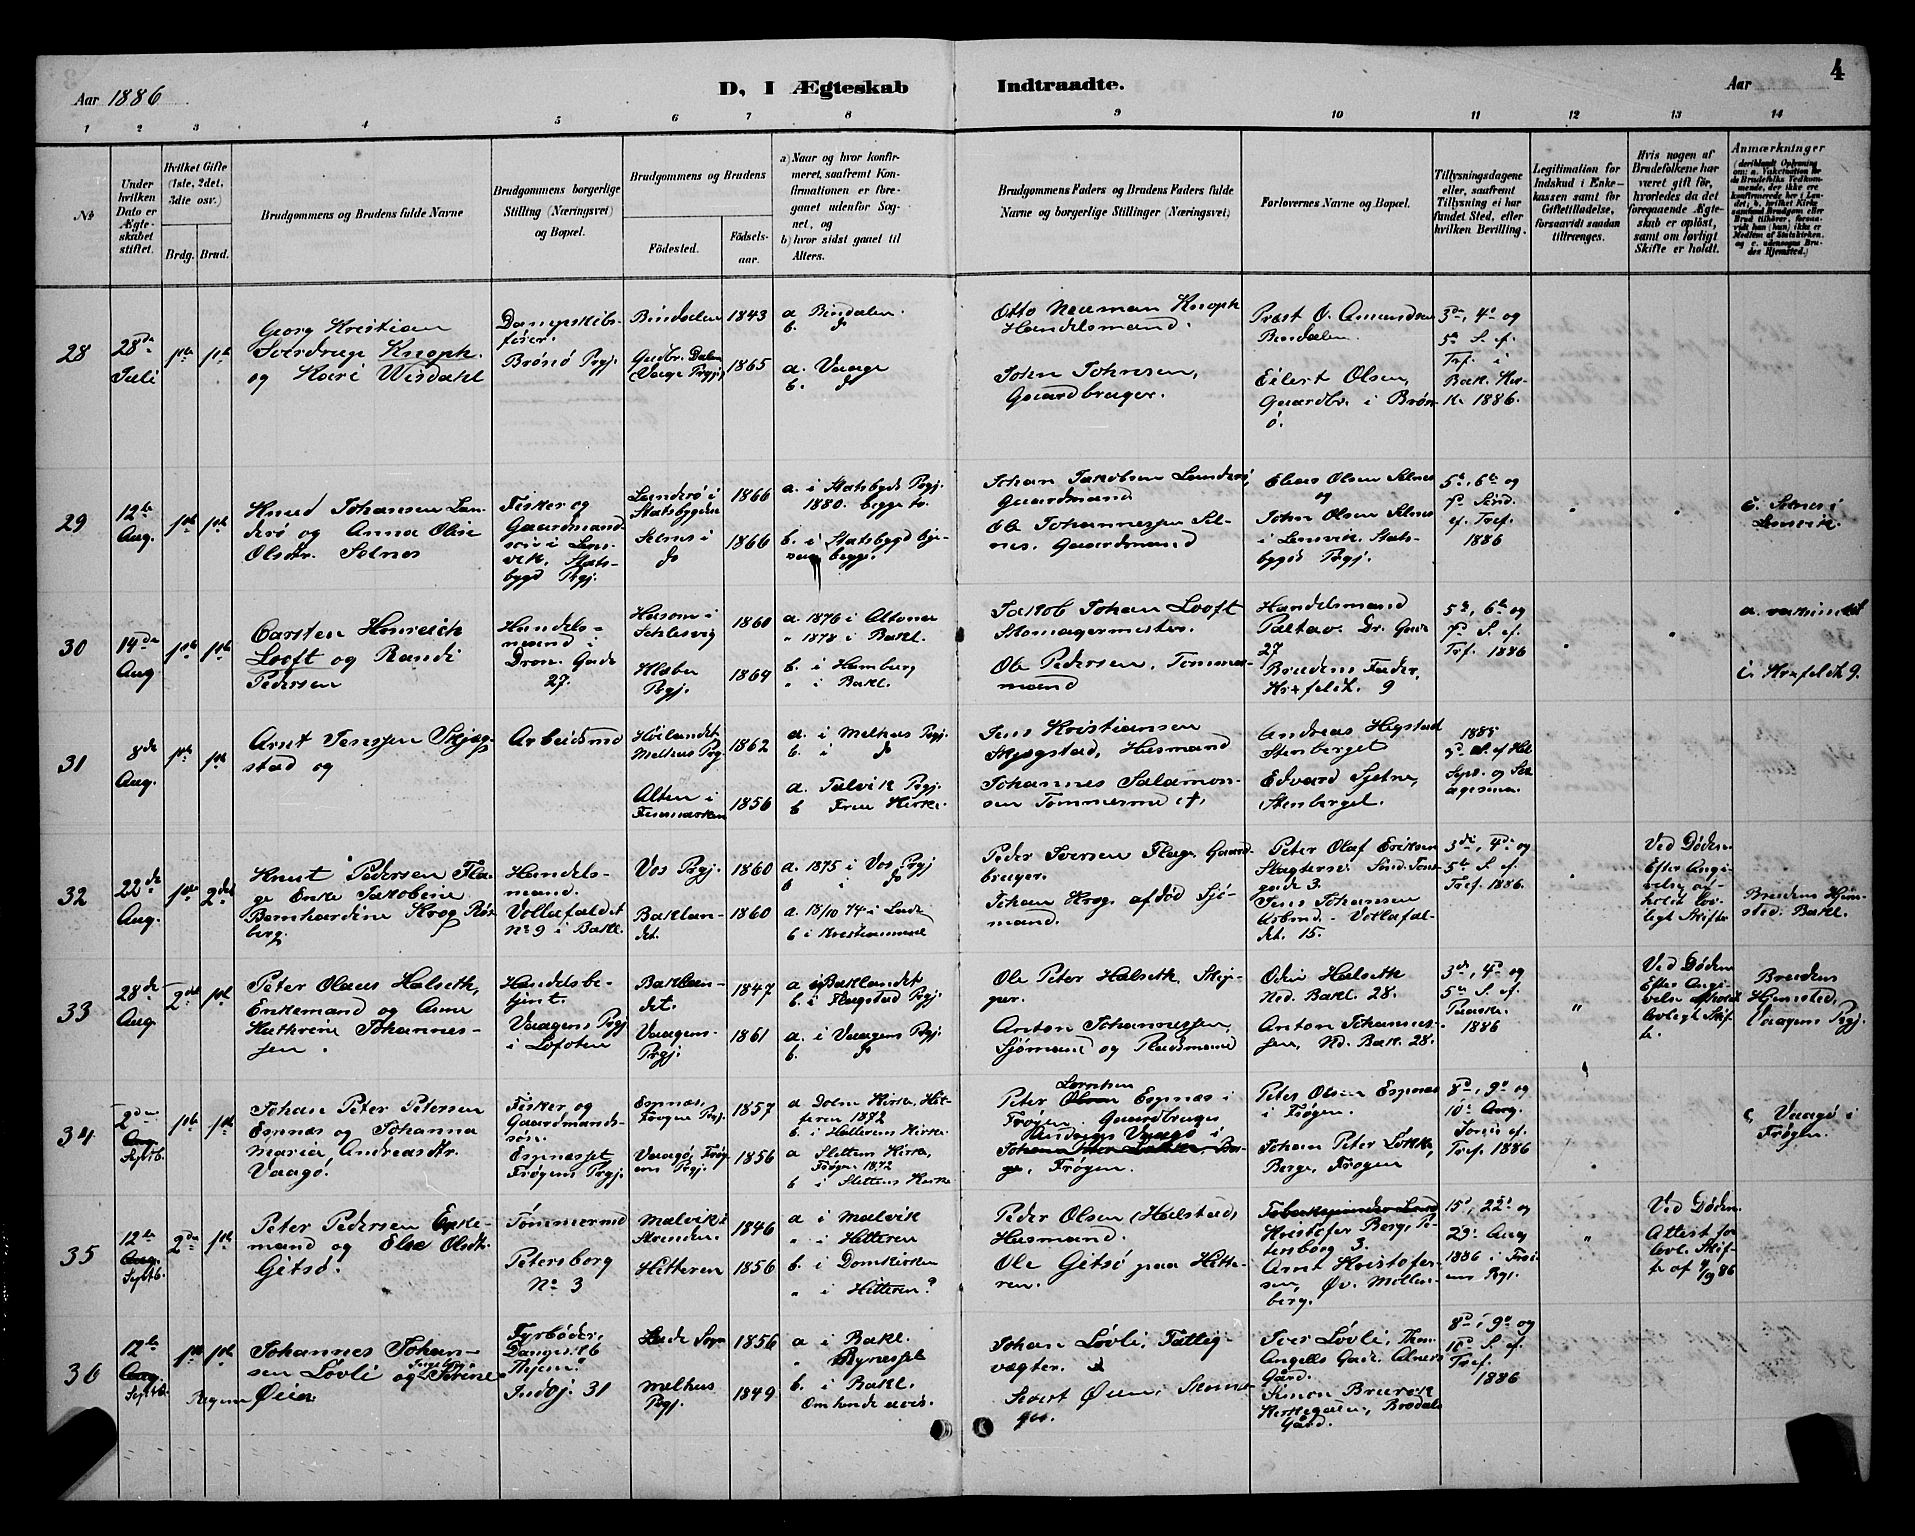 4
Aar 1886
D, I Ægteskab Indtraadte.
Aar
1 2 3 4 5 6 7 8 9 10 11 12 13 14
№
Under hvilken Dato er Ægteskabet stiftet.
Hvilket Gifte (1ste, 2det, 3die osv.)
Brdg. Brud.
Brudgommens og Brudens fulde Navne
Brudgommens borgerlige Stilling (Næringsvei) og Bopæl.
Brudgommens og Brudens
Födested.
Födselsaar.
a) Naar og hvor konfirmeret, saafremt Konfirmationen er foregaaet udenfor Sognet, og
b) hvor sidst gaaet til Alters.
Brudgommens Faders og Brudens Faders fulde Navne og borgerlige Stillinger (Næringsvei)
Forlovernes Navne og Bopæl.
Tillysningsdagene eller, saafremt Tillysning ei har fundet Sted, efter hvilken Bevilling.
Legitimation for Indskud i Enkekassen samt for Giftetilladelse, forsaavidt saadan tiltrænges.
Hvis nogen af Brudefolkene har været gift för, hvorledes da det foregaaende Ægteskab er oplöst, samt om lovligt Skifte er holdt.
Anmærkninger
28
28de Juli
Georg Kristian
Sverdrup Knoph
og Kari Wisdahl
Dampskibs-
fører.
Brönö Prgj.
Bindalen 1843
Gudbr. Dalen
(Vaage Prgj.) 1865
a Bindalen.
b. do
a. Vaage
b. do
Otto Neuman Knoph
Handelsmand.
John Johnsen,
Gaardbruger.
Præst O. Amundsen
Bindalen.
Eilert Olsen,
Gaardbr. i Brön-
ö.
3de, 4de og
5te S. ef.
Tref. i
1886.
29
12te Aug.
Knud Johansen Lan-
derö og Anna Oline
Olsdtr. Selnes
Fisker og
Gaardmands-
sön i Lens-
vik, Stads-
bygd Prgj.
Landerö i
Stadsbygden 1866
Selnes i
do 1866
a. i Stadsbygd Prgj.
1880. begge to.
b. i Stadsbygd
begge.
Johan Jakobsen Landerö,
Gaardmand
Ole Johannessen Sel-
nes. Gaardmand
Elias Olsen Selnes
og
John Olsen Selnes
i Lensvik. Stads-
bygd Prgj.
5te, 6te og
7de Sönd.
ef. Tref.
1886
c. Selnes i
Lensvik.
30
14de Aug
Carsten Henrich
Looft og Randi
Pedersen
Handels-
mand i
Dron. Gade
27.
Husom i
Schlesvig 1860
Klæbu
Prgj. 1864
a. 1876 i Altona
" 1878 i Bakl.
b. i Hamburg
" i Bakl.
Jakob Johan Looft
Skomagermester.
Ole Pedersen, Tömmer-
mand
Handelsmand
Paltav. Dr. Gade
27
Brudens Fader,
9
5te, 6te og
7de S. ef.
Tref. 1886
a. vaksineret
31
8de Aug.
Arnt Jenssen Skjøg-
stad og
Arbeidsmd
Hölandet
Melhus Prgj 1862
Alten i
Finmarken 1856
a. i Melhus Prgj.
b. i do
a. Talvik Prgj.
b Frue Kirke.
Jens Kristiansen
Skjøgstad, Husmand
Johannes Salamon-
sen Tömmermd †.
Andreas Hegstad
Stenberget
Edvard Sjetne,
Stenberget.
1885
32
22de Aug.
Knut Pedersen Fla-
ge Enke Jakobine
Bernhardine Krog Ros-
berg.
Handels-
mand.
Vollafaldet
No 9 i Bakl.
Vos Prgj. 1860
Baklan-
det. 1860
a. 1875 i Vos Prgj
b i do
a. 18/10 74 i Lade
b i Kristiansund
Peder Iversen Flage Gaard-
bruger.
Johan Krog afdöd Sjö-
mand.
Peter Olaf Eriksen
gade 3.
Jens Johansen
Arbmd. Vollafal-
det. 15.
3die, 4de og
5te S. ef.
Tref. 1886.
Ved Döden
Efter Angi-
velse af-
holdt lov-
ligt Skifte
Brudens Hjem-
sted: Bakl.
33
28de Aug.
2det
Peter Olaus Halseth,
Enkemand og Anne
Kathrine Johannes-
sen.
Handelsbe-
tjent.
Vaagens Prgj
i Lofoten
Baklan-
det. 1847
Vaagens
Prgj. 1861
a i Baklandet
b. i Flagstad Prgj.
a. i Vaagens Prgj.
b. do
Ole Peter Halseth, Skip-
per.
Anton Johannessen,
Sjömand og Pladsmand
Odin Halseth
Ned. Bakl. 28.
Anton Johannes-
sen, Nd. Bakl. 28.
3die, 4de og
5te S. ef.
Paaske.
1886
Ved Döden
Efter Angi-
velse afholdt
lovligt Skif-
te.
Brudens
Hjemsted,
Vaagens Prgj.
34
2den Aug. Septb.
Johan Peter Petersen
Espnæs og Johanna
Maria Andreasdtr.
Vaagö.
Fisker og
Gaardmands-
sön.
Espnæsset
Frögens Prgj.
Espnæs,
Frögens Prgj. 1857
Vaagö, Frög-
ens Prgj. 1856
a Dolm Kirke, Hit-
teren 1872
b. i Hitterens Kirke.
a Sletten Kirke,
Frögen 1872
b i Slettens Kirke
Peter Lorntsen Olsen Espnæs i
Frögen. Gaardbruger
Andreas Vaagö i
Frögen.
Peter Olsen Espnæs
i Frögen.
Johan Peter Lökke,
Berge, Frögen
8de, 9de og
10de Aug.
Sönd. ef.
Tref. 1886
c. Vaagö i
Frögen.
35
12te Aug. Septb.
Peter Pedersen Enke-
mand og Else Olsdtr.
Gitsö.
Tömmermd
Petersborg
No 3
Malvik i
Stranden. 1846
Hitteren 1856
a i Malvik
" i Hitteren
b. i Domkirken
" i Hitteren?
Peder Olsen (Halstad)
Husmand.
Ole Gitsö paa Hitte-
ren.
Kristofer Berg, Pe-
tersborg 3.
Arnt Kristofer-
sen, Öv. Möllen-
berg.
15de, 22de og
29de Aug
1886
Ved Döden.
Attest for
lovl. Skif-
te af 4/9 86
36
12te Aug. Septb.
Johannes Johan-
sen Lövli og Ingeborg Serine
Öien
Fyrböder,
Dampsk.
Indhj. 31
Lade Sogn 1856
Melhus
Prgj. 1849
a i Bakl.
" Bynesset
b. i Bakl.
Om hende uvis.
Johan Lövli, Fattig-
vægter.
Sivert Öien,
Iver Lövli, Thom.
Angells Gade,
Gård.
Simon
Gård.
8de, 9de og
10de S. ef.
Tref.
1886